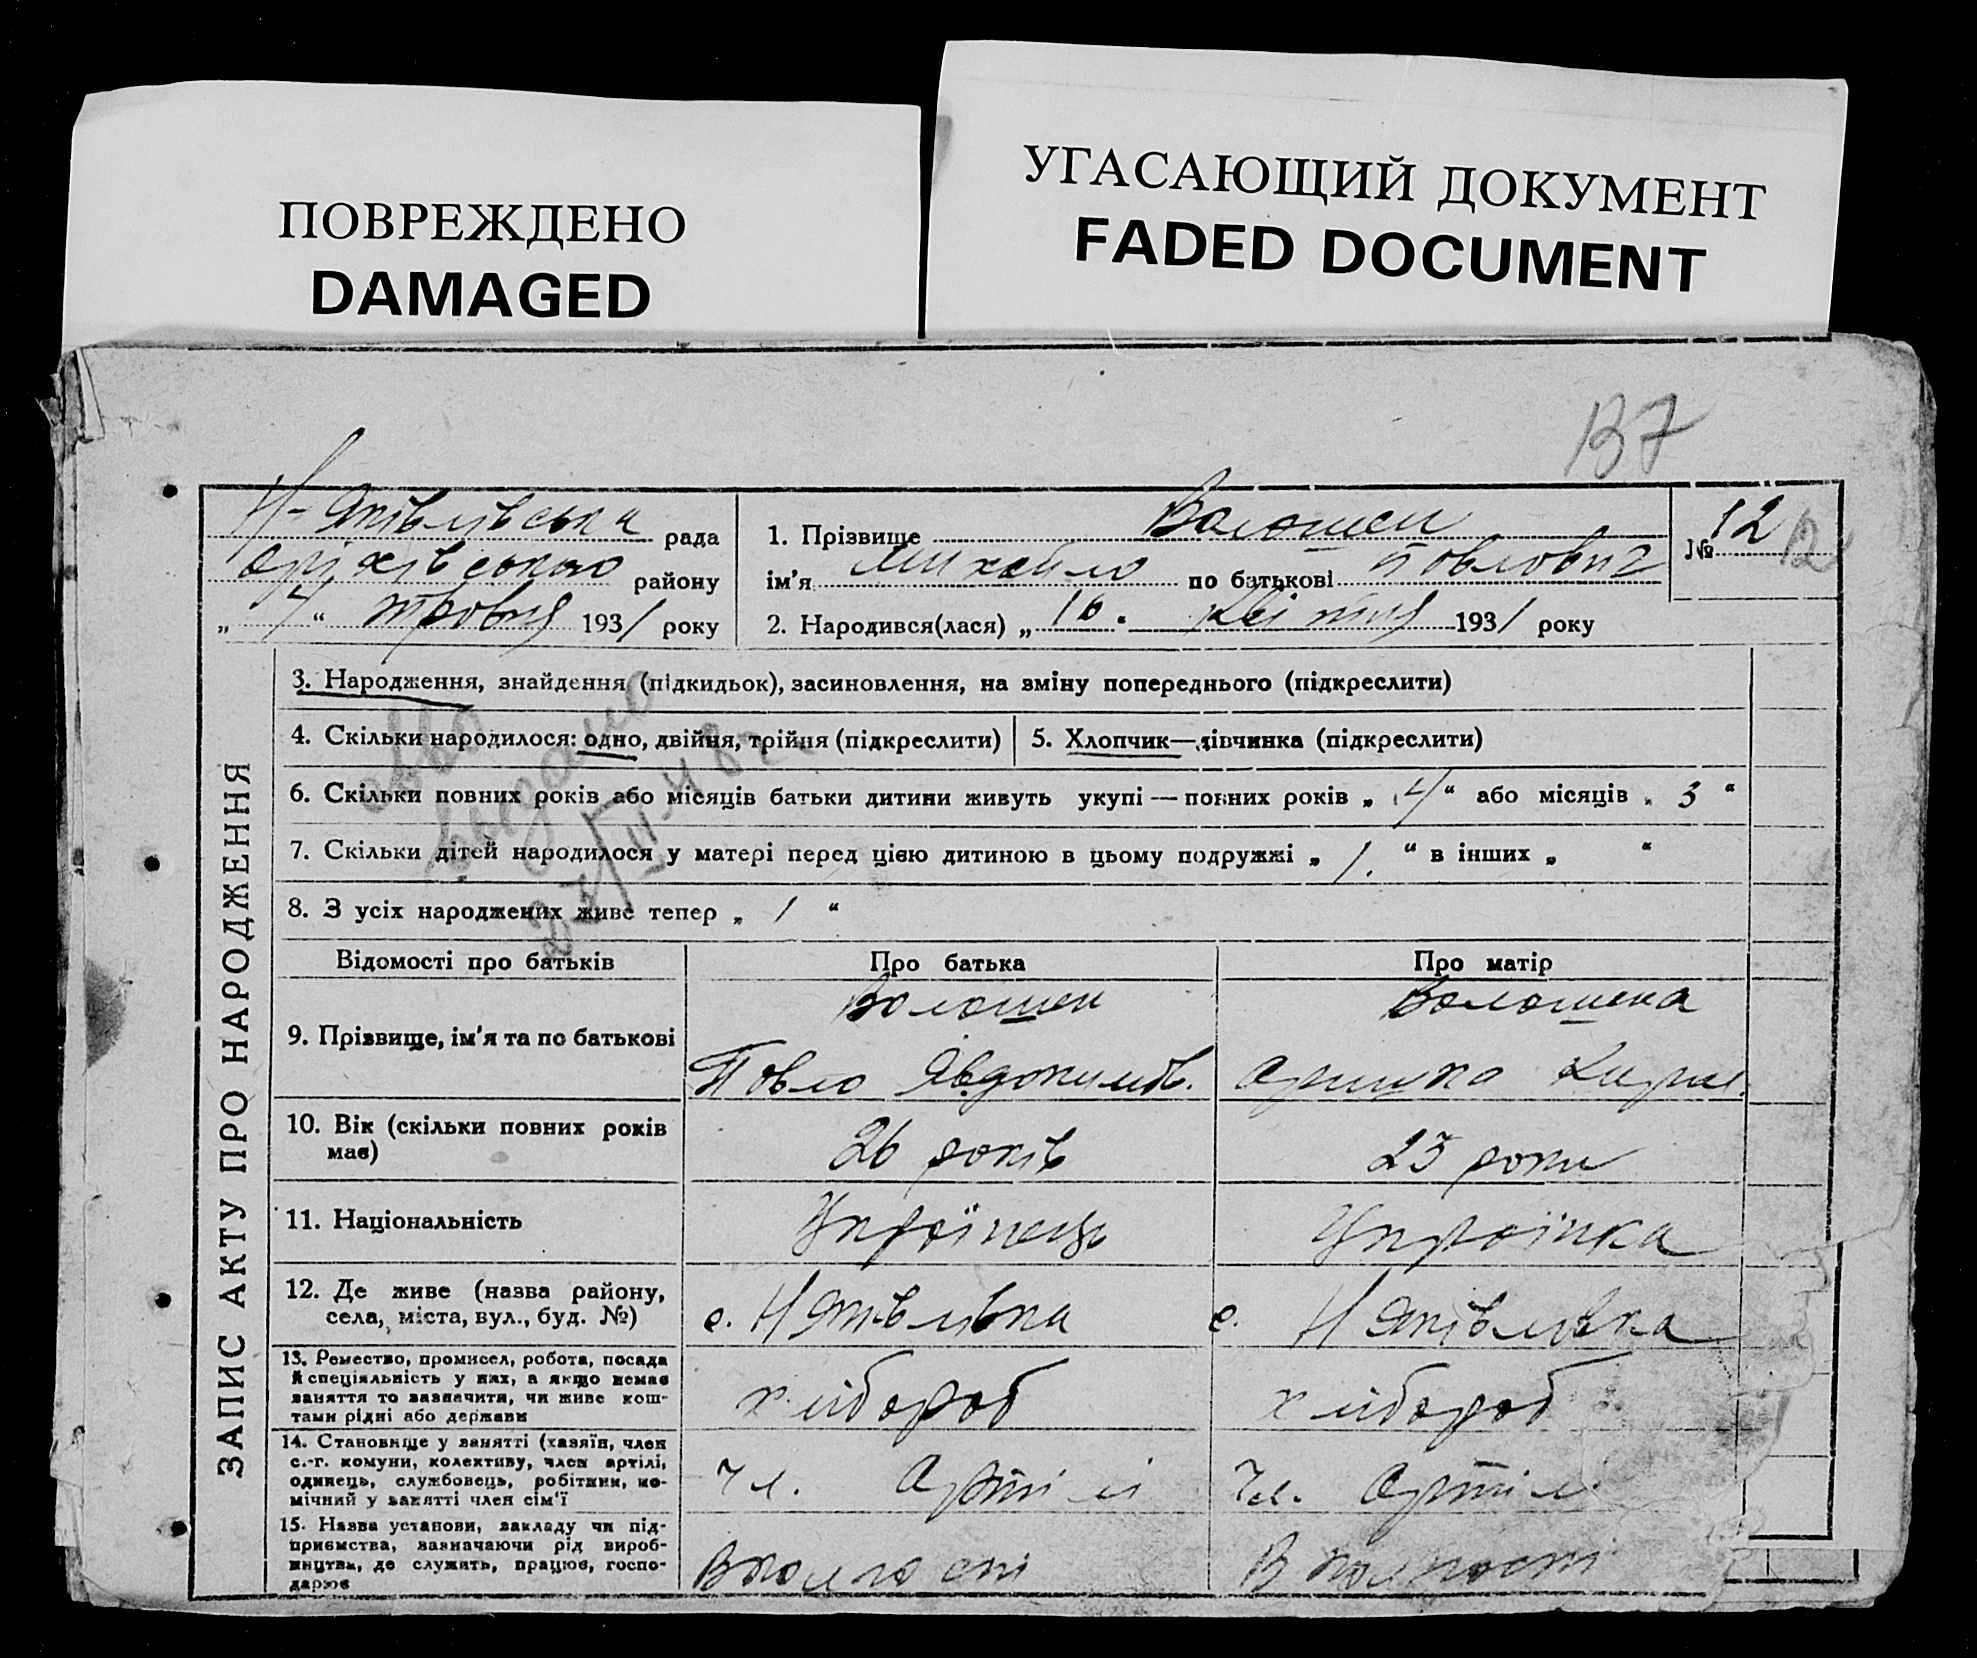 ПОВРЕЖДЕНО
DAMAGED
УГАСАЮЩИЙ ДОКУМЕНТ
FADED DOCUMENT
137
Н-Яківлівська рада
Оріхівського району
„ 4 “ травня 1931 року
1. Прізвище Волошен
ім'я Михайло по батькові Павлович
2. Народився(лася) „ 16 “ квітня 1931 року
№ 12
12
ЗАПИС АКТУ ПРО НАРОДЖЕННЯ
3. Народження, знайдення (підкидьок), засиновлення, на зміну попереднього (підкреслити)
4. Скільки народилося: одно, двійня, трійня (підкреслити)
5. Хлопчик—дівчинка (підкреслити)
6. Скільки повних років або місяців батьки дитини живуть укупі — повних років „ 4 “ або місяців „ 3 “
7. Скільки дітей народилося у матері перед цією дитиною в цьому подружжі „ 1. “ в інших „ “
8. З усіх народжених живе тепер „ 1 “
видано
Відомості про батьків
Про батька
Про матір
9. Прізвище, ім'я та по батькові
Волошен
Павло Явдокимов.
Волошена
Оришка Кирил.
10. Вік (скільки повних років
має)
26 років
23 роки
11. Національність
Українець
Українка
12. Де живе (назва району,
села, міста, вул., буд. №)
с. Н Яківлівка
с. Н Яківлівка
13. Ремество, промисел, робота, посада
й спеціяльність у них, а якщо немає
заняття то зазначити, чи живе кош-
тами рідні або держави
хлібороб
хлібороб
14. Становище у занятті (хазяїн, член
с.-г. комуни, колективу, член артілі,
одинець, службовець, робітник, по-
мічний у занятті член сім'ї
Чл. Артілі
Чл. Артілі
15. Назва установи, закладу чи під-
приємства, зазначаючи рід вироб-
ництва, де служить, працює, госпо-
дарює
В колгоспі
В колгоспі